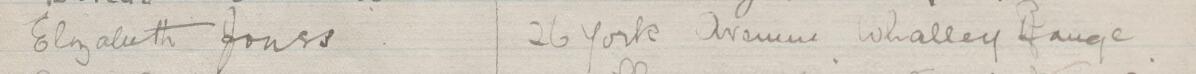 Elizabeth Jones 26 York Avenue Whalley Range